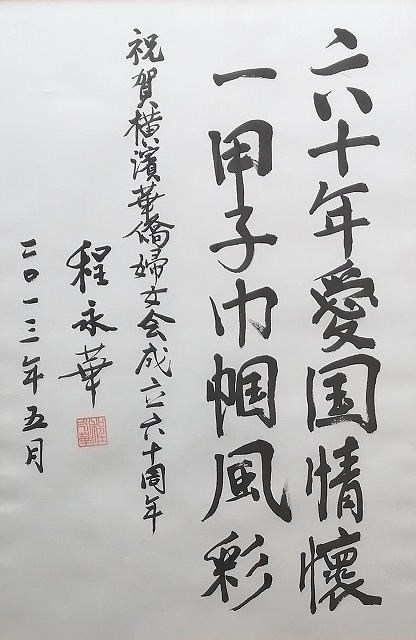 六十年愛国情懷
一甲子巾帼風彩
祝賀橫濱華僑婦女会成立六十周年
程永華
二〇一三年五月